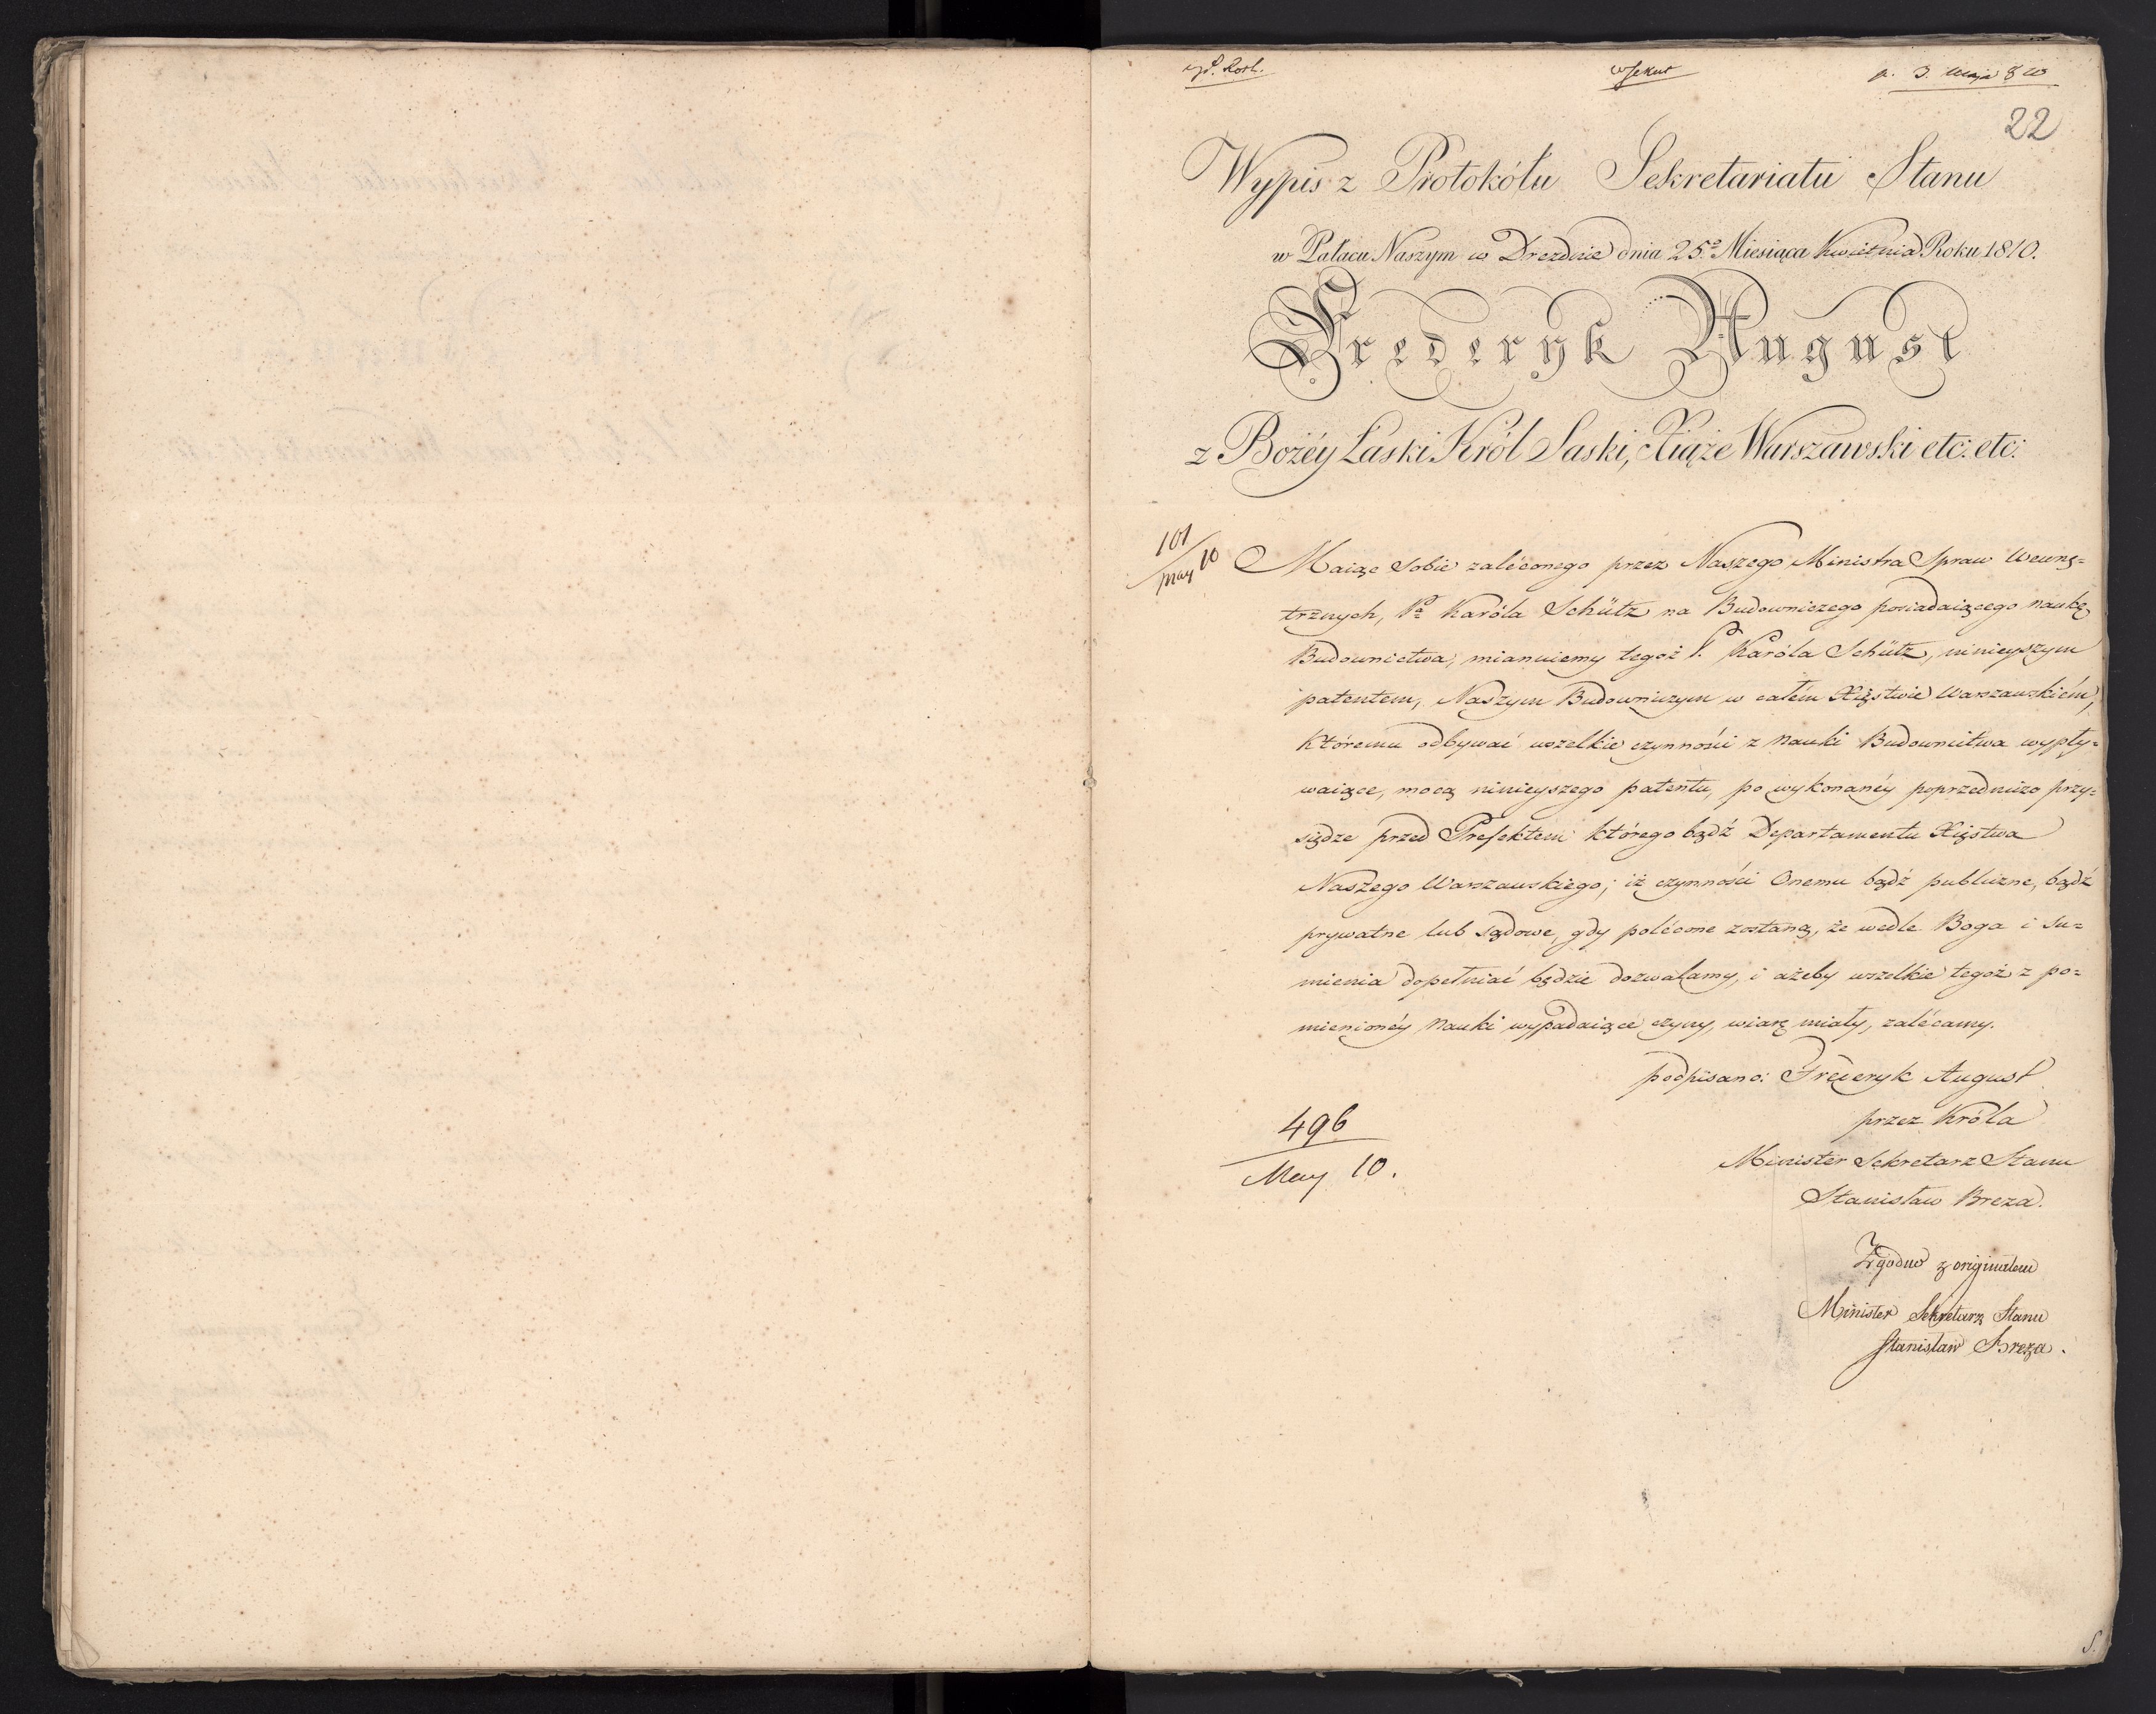 p. 3. Maja 810
22
Wypis z Protokółu Sekretariatu Stanu
w Pałacu Naszym w Dreźdnie dnia 25º Miesiąca Kwietnia Roku 1810.
Frederyk August
z Bożéy Łaski Król Saski, Xiąże Warszawski etc: etc:
101
May 10
Maiąc sobie zaléconego przez Naszego Ministra Spraw Wewnę=
trznych, Pª Karóla Schütz na Budowniczego posiadaiącego naukę
Budownictwa, mianuiemy tegoż P. Karóla Schütz, ninieyszym
patentem, Naszym Budowniczym w całém Xięstwie Warszawskiém,
któremu odbywać wszelkie czynności z Nauki Budownictwa wypły=
waiące, mocą ninieyszego patentu, po wykonanéy poprzedniczo przy=
siędze przed Prefektem którego bądź Departamentu Xięstwa
Naszego Warszawskiego; iż czynności Onemu bądź publiczne, bądź
prywatne lub sądowe, gdy polécone zostaną, że wedle Boga i su=
mienia dopełniać będzie dozwalamy, i ażeby wszelkie tegoż z po=
mienionéy Nauki wypadaiące czyny, wiarę miały, zalécamy.
podpisano: Frederyk August
przez Króla
Minister Sekretarz Stanu
Stanisław Breza.
496
May 10.
Zgodno z originałem
Minister Sekretarz Stanu
Stanisław Breza.